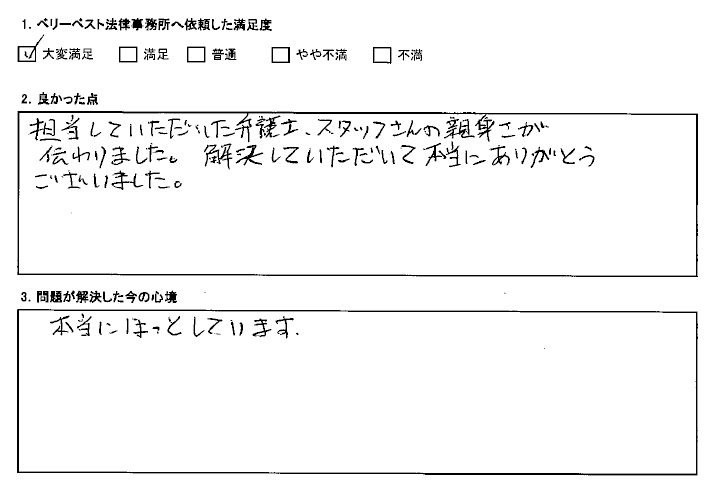 1. ベリーベスト法律事務所へ依頼した満足度
大変満足 満足 普通 やや不満 不満
2. 良かった点
担当していただいた弁護士、スタッフさんの親身さが
伝わりました。解決していただいて本当にありがとう
ございました。
3. 問題が解決した今の心境
本当にほっとしています.